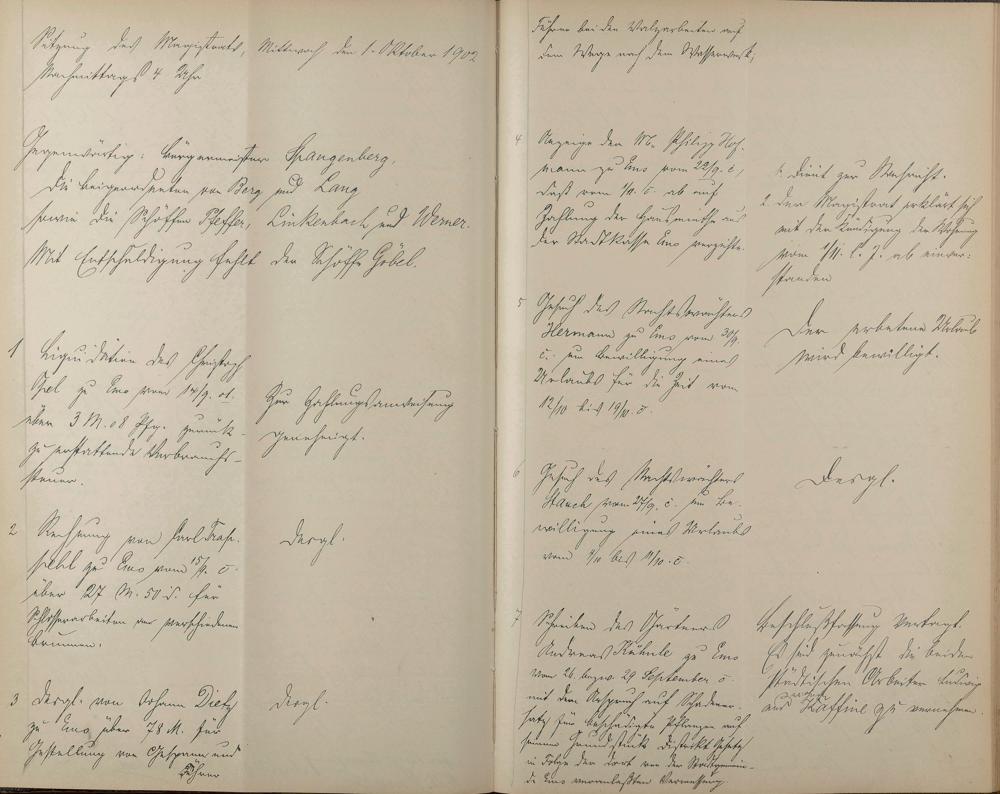 Sitzung des Magistrats, Mittwoch den 1. Oktober 1902
Nachmittags 4 Uhr
Gegenwärtig: Bürgermeister Spangenberg,
Die Beigeordneten von Berg und Lang
sowie die Schöffen Pfeffer, Linkenbach und Werner.
Mit Entschuldigung fehlt der Schöffe Göbel.
1 Liquidation des Christoph
zu Ems vom 14/9. 01.
über 3 M. 08 Pfg. zurück-
zu erstattende Verbrauchs-
steuer.
Zur Zahlungsanweisung
genehmigt.
2 Rechnung von Carl
zu Ems vom 15/9. c.
über 27 M. 50 d. für
Schlosserarbeiten an verschiedenen
Brunnen.
Desgl.
3 Desgl. von Johann Dietz
zu Ems über 78 M. für
Gestellung von Gespann und
Führer
Desgl.
Führer bei den Walzarbeiten auf
dem Wege nach dem Wasserwerk,
4 Anzeige des Philipp Hof-
mann zu Ems vom 22/9. c.,
daß vom 1/10. c. ab auf
Zahlung der Hausmiethe aus
der Stadtkasse Ems verzichte.
1. Dient zur Nachricht.
2. Der Magistrat erklärt sich
mit der Kündigung der Wohnung
vom 1/11. l. J. ab einver-
standen
5 Gesuch des Nachtswächters
Hermann zu Ems vom 30/9.
c. um Bewilligung eines
Urlaubs für die Zeit vom
12/10 bis 19/10. c.
Der erbetene Urlaub
wird bewilligt.
6 Gesuch des Nachtswächters
Stauch vom 27/9. c. um Be-
willigung eines Urlaubs
vom bis 11/10. c.
Desgl.
7 Schreiben des Gärtners
Andreas Kühnle zu Ems
vom 26. bezw. 29 September c.
mit dem Anspruch auf Schadener-
satz für beschädigte Pflanzen auf
seinem Grundstück Distrikt
in Folge der dort von der Stadtgemein-
de Ems veranlaßten Vermessung
Beschlußfassung vertagt.
Es sind zunächst die beiden
städtischen Arbeiter Ludwig
und Kaffine zu vernehmen.